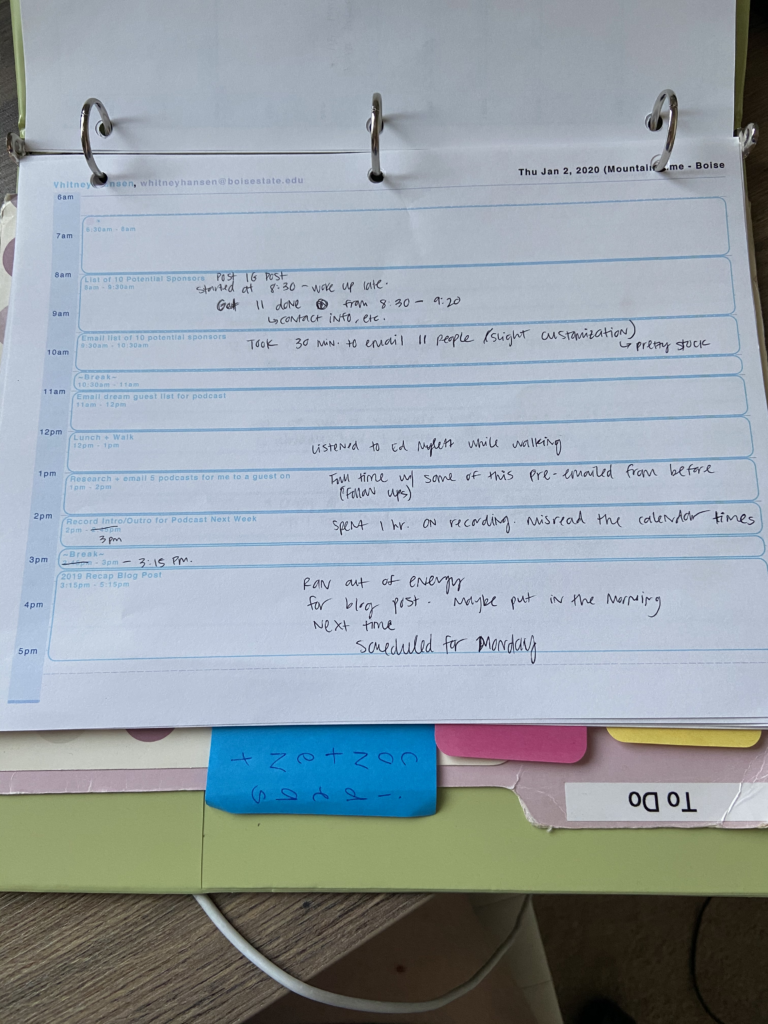 Thu Jan 2, 2020 (Mountain me - Boise
Whitney nsen, whitneyhansen@boisestate.edu
6am
6:30am - 8am
7am
8am
List of 10 Potential Sponsors
8am - 9:30am
Post IG Post
started at 8:30 - woke up late.
Got 11 done from 8:30 - 9:20
↳ contact info, etc.
9am
Email list of 10 potential sponsors
9:30am - 10:30am
Took 30 min. to email 11 people (slight customization)
↳ pretty stock
10am
~Break~
10:30am - 11am
11am
Email dream guest list for podcast
11am - 12pm
12pm
Lunch + Walk
12pm - 1pm
Listened to Ed Mylett while walking
1pm
Research + email 5 podcasts for me to a guest on
1pm - 2pm
Full time w/ some of this pre-emailed from before
(follow ups)
2pm
Record Intro/Outro for Podcast Next Week
2pm -
3pm
Spent 1 hr. on recording. Misread the calendar times
3pm
~Break~
- 3pm - 3:15 pm.
2019 Recap Blog Post
3:15pm - 5:15pm
Ran out of energy
for blog post. Maybe put in the morning
next time
Scheduled for Monday
4pm
5pm
content
ideas
To Do